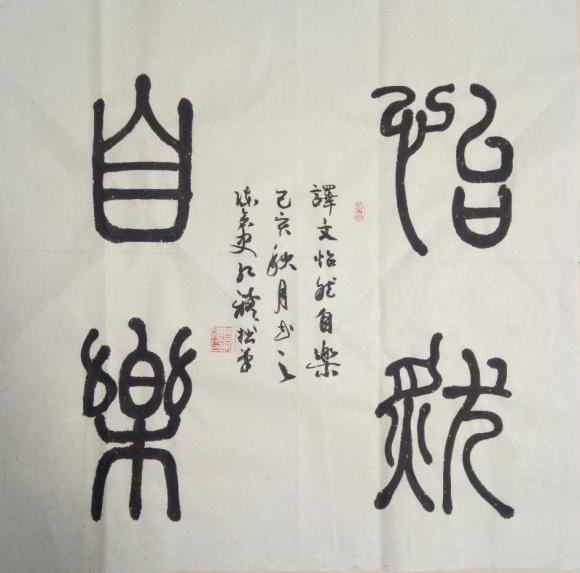 怡然
自樂
譯文怡然自樂
己亥秋月书之